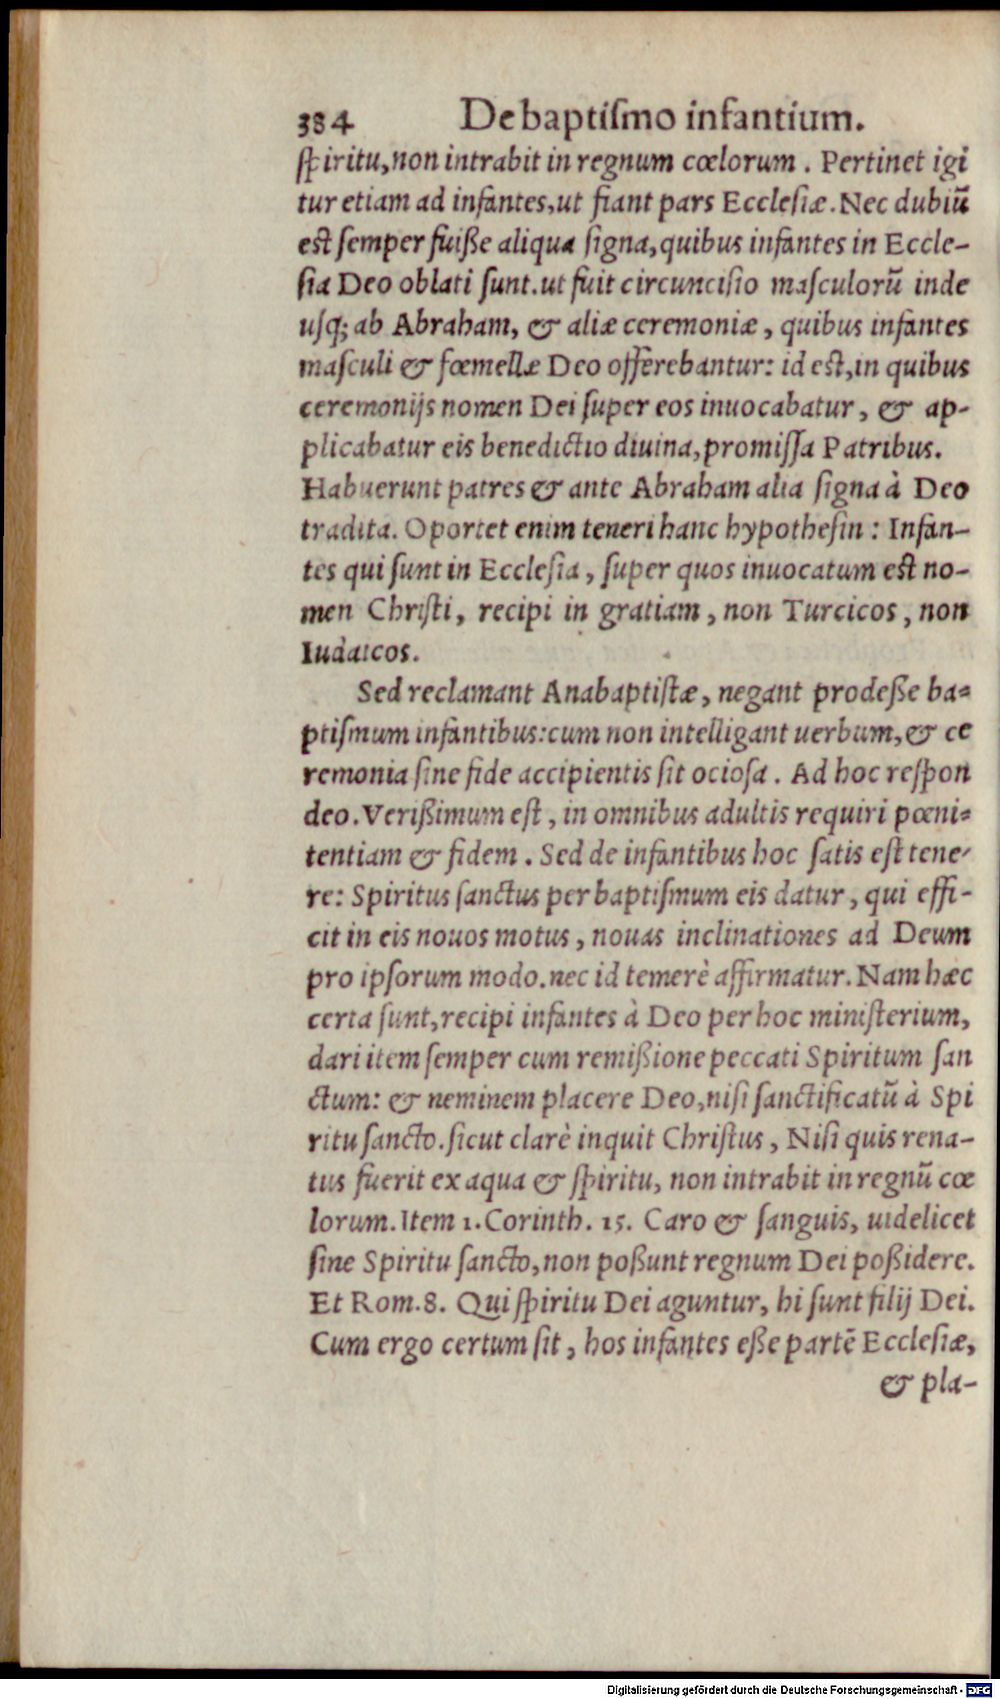 384 De baptiſmo infantium.
ſpiritu, non intrabit in regnum cœlorum. Pertinet igi
tur etiam ad infantes, ut fiant pars Eccleſiæ. Nec dubiũ
eſt ſemper fuiße aliqua ſigna, quibus infantes in Eccle-
ſia Deo oblati ſunt. ut fuit circunciſio maſculorũ inde
uſq; ab Abraham, & aliæ ceremoniæ, quibus infantes
maſculi & fœmellæ Deo offerebantur: id eſt, in quibus
ceremonijs nomen Dei ſuper eos inuocabatur, & ap-
plicabatur eis benedictio diuina, promiſſa Patribus.
Habuerunt patres & ante Abraham alia ſigna à Deo
tradita. Oportet enim teneri hanc hypotheſin: Infan-
tes qui ſunt in Eccleſia, ſuper quos inuocatum eſt no-
men Chriſti, recipi in gratiam, non Turcicos, non
Iudaicos.
Sed reclamant Anabaptiſtæ, negant prodeße ba-
ptiſmum infantibus: cum non intelligant uerbum, & ce
remonia ſine fide accipientis ſit ocioſa. Ad hoc reſpon
deo. Verißimum eſt, in omnibus adultis requiri pœni-
tentiam & fidem. Sed de infantibus hoc ſatis eſt tene-
re: Spiritus ſanctus per baptiſmum eis datur, qui effi-
cit in eis nouos motus, nouas inclinationes ad Deum
pro ipſorum modo. nec id temerè affirmatur. Nam hæc
certa ſunt, recipi infantes à Deo per hoc miniſterium,
dari item ſemper cum remißione peccati Spiritum ſan
ctum: & neminem placere Deo, niſi ſanctificatũ à Spi
ritu ſancto. ſicut clarè inquit Chriſtus, Niſi quis rena-
tus fuerit ex aqua & ſpiritu, non intrabit in regnũ cœ
lorum. Item 1. Corinth. 15. Caro & ſanguis, uidelicet
ſine Spiritu ſancto, non poßunt regnum Dei poßidere.
Et Rom. 8. Qui ſpiritu Dei aguntur, hi ſunt filij Dei.
Cum ergo certum ſit, hos infantes eße partẽ Eccleſiæ,
& pla-
Digitalisierung gefördert durch die Deutsche Forschungsgemeinschaft - DFG